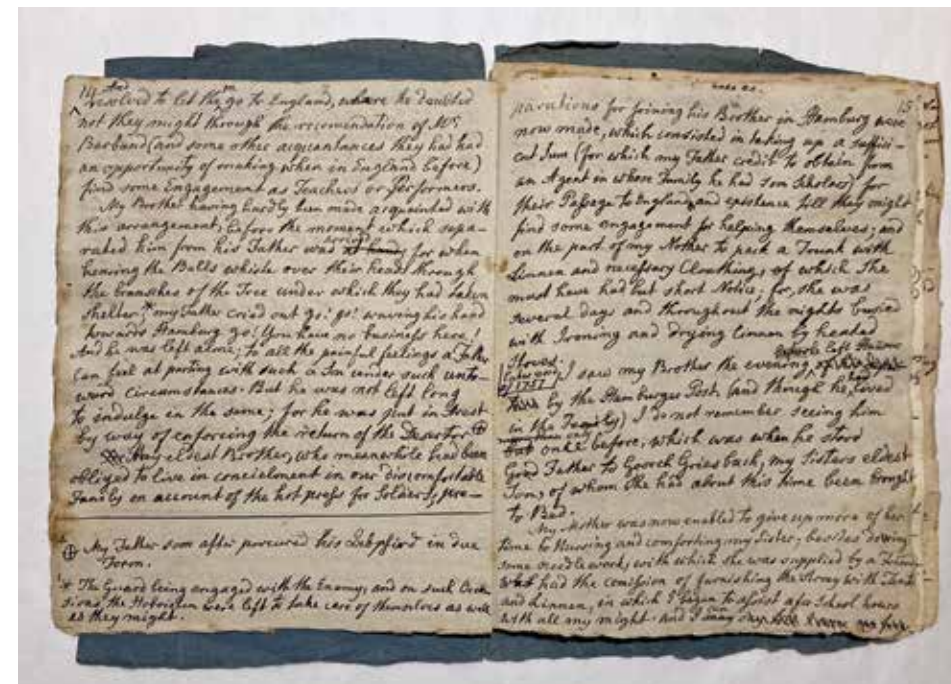 14 And
resolved to let them go to England, where he doubted
not they might through the recomendation of Mr
Barband (and some other acquantances they has had
an opportunity of making when in England before)
find some Engagement as Teachers or performers.
My Brother having hardly been made acquainted with
this arrangement, before the moment which sepa-
rated him from his Father was arrived for when
hearing the Balls whistle over their heads through
the branshes of the Tree under which they had taken
shelter * my Father cried out go! go! waving his hand
towards Hamburg go! You have no business here!
And he was left alone; to all the painful feelings a Father
can feel at parting with such a Son under such unto-
ward circumstances. But he was not left long
to indulge in the same; for he was put in Arest
by way of enforcing the return of the Desertor ⊕
My eldest Brother, who meanwhile had been
obliged to live in concielment in our discomfortable
Family on account of the hot press for Soldiers, pre-
⊕ My Father soon after procured his in due
Form.
* The Guard being engaged with the Enemy, and on such Occa-
sions, the Hoboisten were left to take care of themselves as well
as they might.
15
parations for joining his Brother in Hamburg were
now made, which consisted in taking up a suffisi-
ent sum (for which my Father credit to obtain form
an Agent in whose Family he had som Scholars) for
their Passage to England, and existence till they might
find some engagement for helping themselves; and
on the part of my Mother to pack a Trunk with
Linnen and necessary Cloathing, of which She
must have had but short Notice; for, she was
several days and throughout the nights busied
with Ironing and drying linnen by heated
Stoves.
1757 I saw my Brother the evening before he left
by the Hamburger Post (and though he lived
in the Family) I do not remember seeing him
once before, which was when he stood
God Father to Georch Griesbach, my Sisters eldest
Son, of whom She has about this time been brought
to Bed.
My Mother was now enabled to give up more of her
time to Nursing and comforting my Sister, besides doing
some needle work, with which she was supplied by a
had the comission of furnishing the Army with Tents
and Linnen, in which I began to assist after School hours
with all my might. And I may say